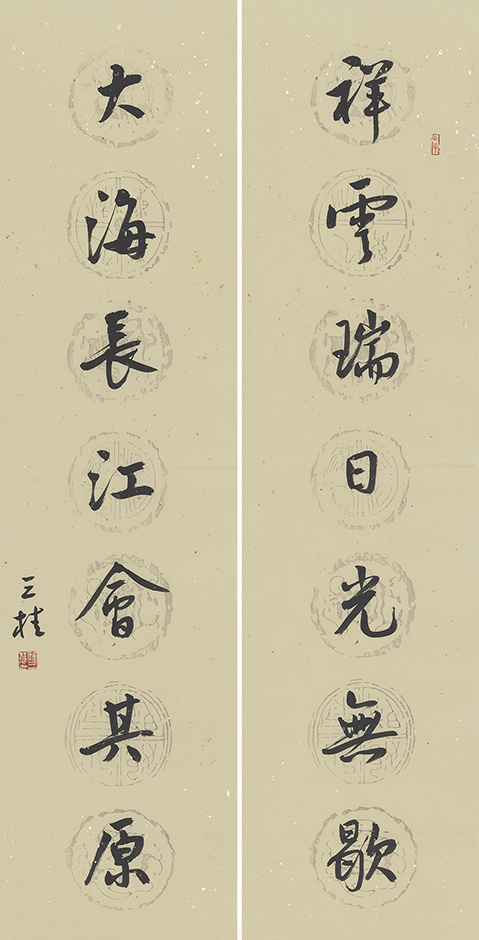 祥雲瑞日光無歇
大海長江會其原
三桂